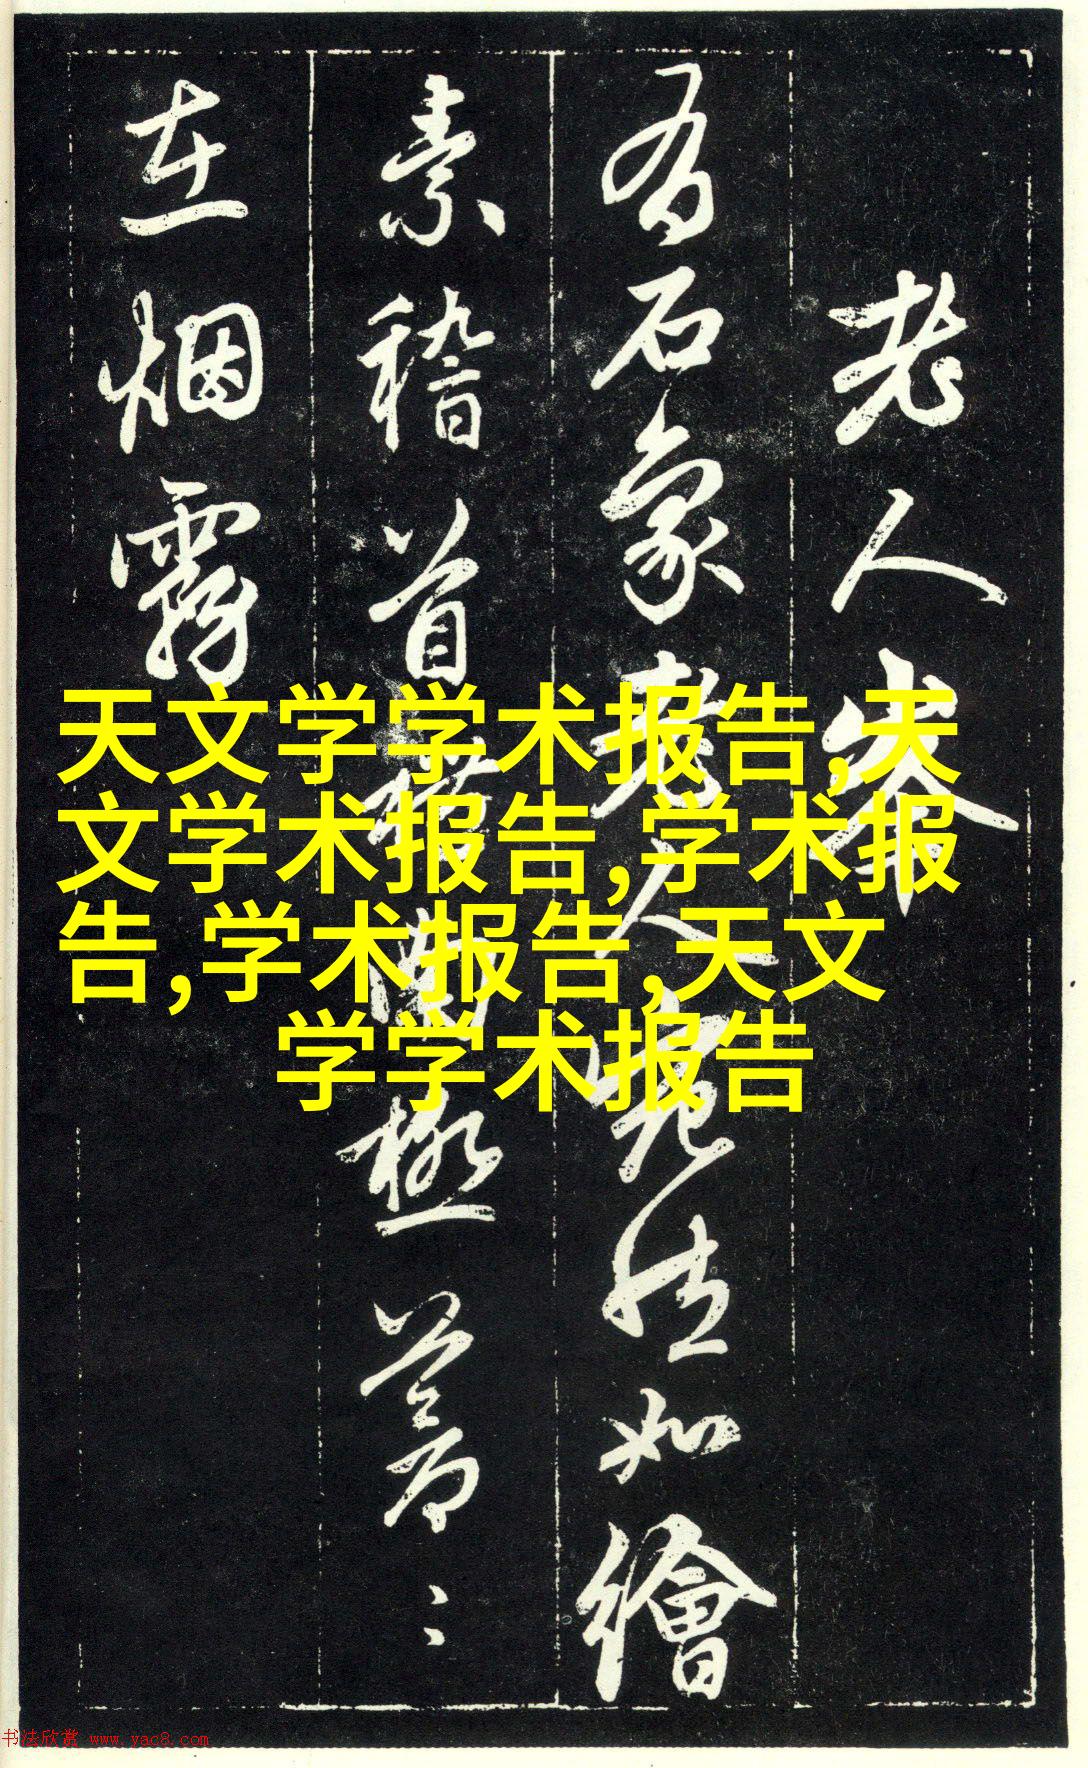 老人峯
有石象老人宛然如繪
素稽首拱南極蒼蒼
在烟霧
天文学学术报告,天
文学术报告,学术报
告,学术报告,天文
学学术报告
书法欣赏 www.yac8.com